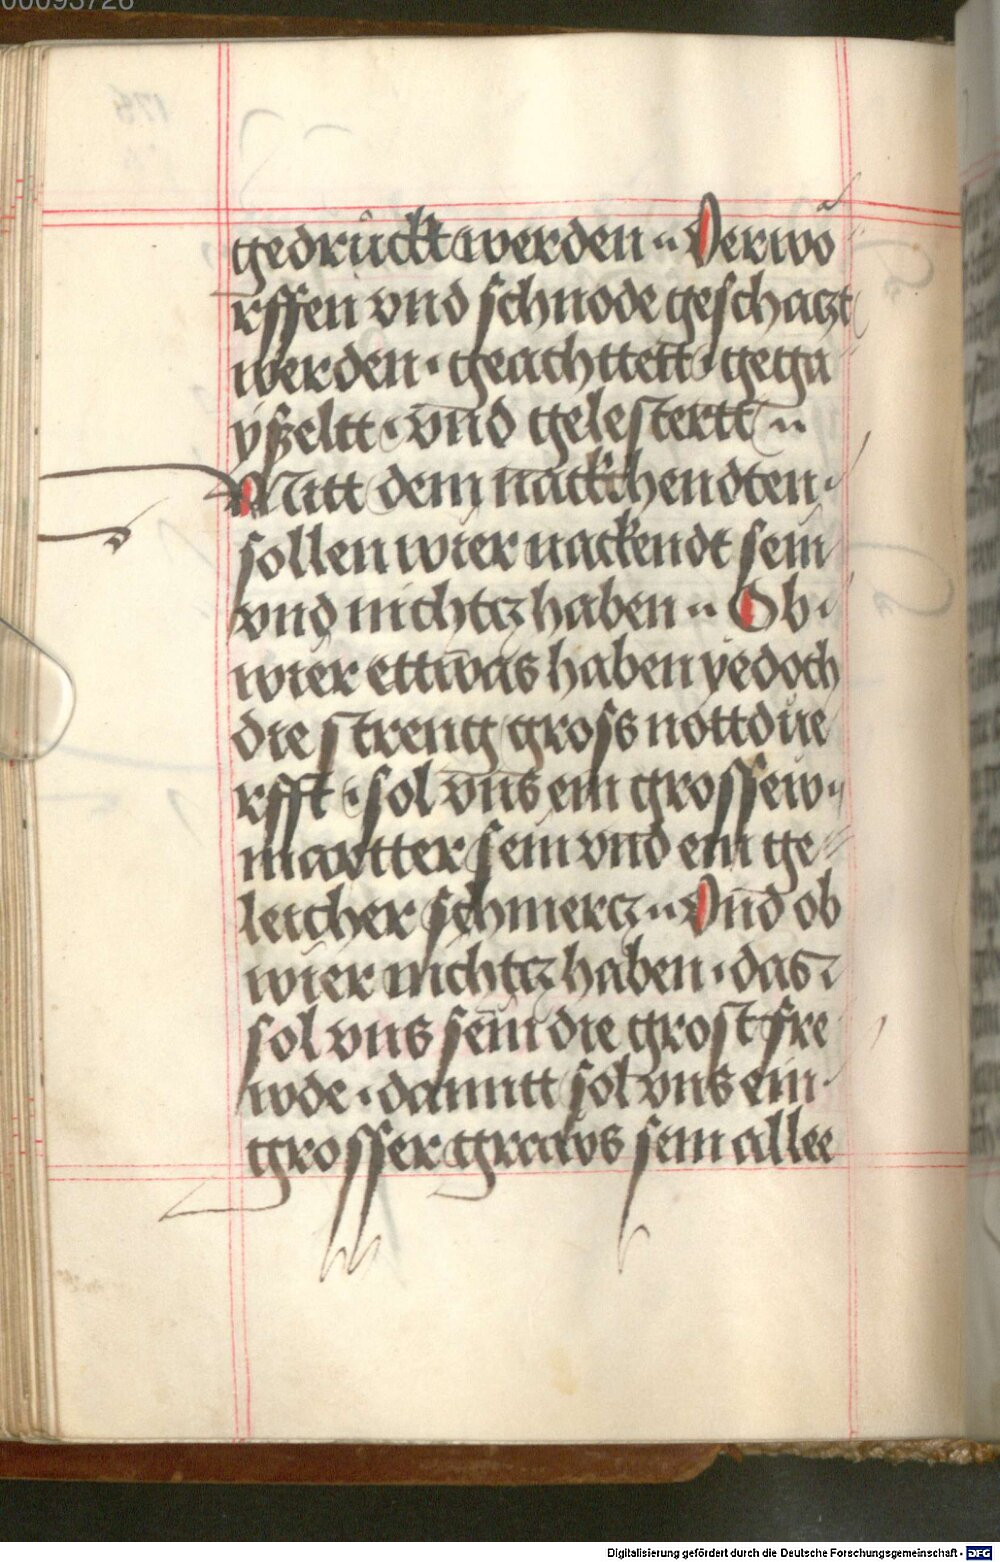 00093726
gedrückt werden ·· Verwo
rffen vnd schnode geschaczt
werden · geachttett · gega
yßeltt · vnd gelestertt ··
Mitt dem nackchendten ·
sollen wier nackendt sein
vnd nichtcz haben ·· Ob ·
wier ettwas haben yedoch
die streng gross nottdue
rfft · sol vns ein grossew ·
martter sein vnd ein ge
leicher schmercz ·· Vnd ob
wier nichtcz haben · das
sol vns sein die grost fre
wde · damitt sol vns ein ·
grosser gravs sein allee
Digitalisierung gefördert durch die Deutsche Forschungsgemeinschaft - DFG